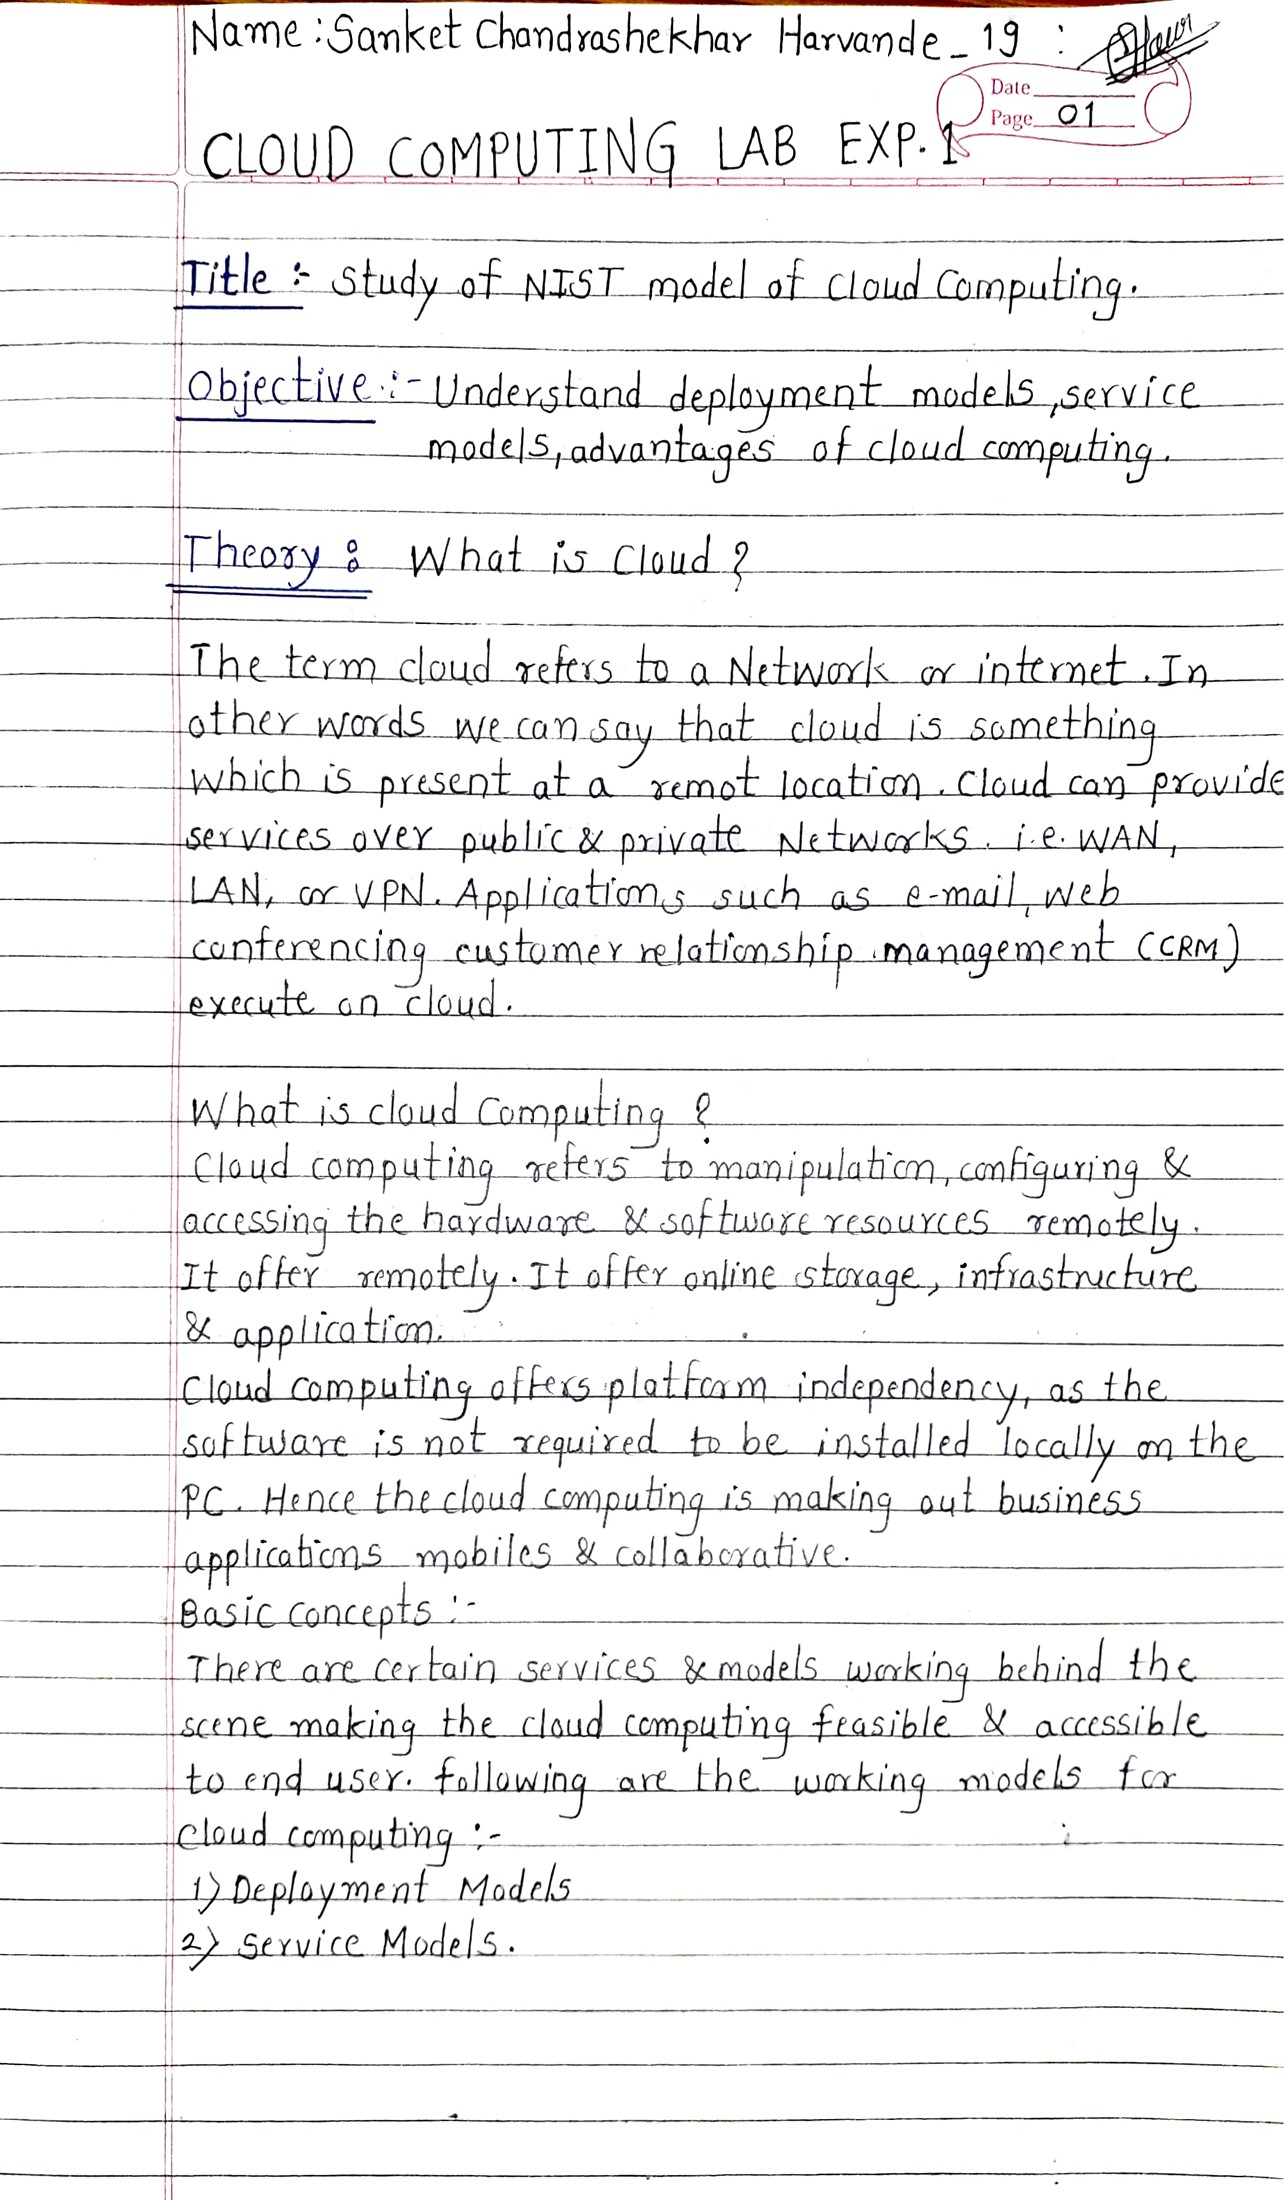 Name : Sanket Chandrashekhar Harvande_19 :
Date
Page 01
CLOUD COMPUTING LAB EXP. 1
Title :- Study of NIST model of Cloud Computing.
Objective :- Understand deployment models, service
models, advantages of cloud computing.
Theory : What is Cloud ?
The term cloud refers to a Network or internet. In
other words we can say that cloud is something
which is present at a remot location. Cloud can provide
services over public & private Networks. i.e. WAN,
LAN, or VPN. Applications such as e-mail, web
conferencing customer relationship management (CRM)
execute on cloud.
What is cloud Computing ?
Cloud computing refers to manipulation, configuring &
accessing the hardware & software resources remotely.
It offer remotely. It offer online storage, infrastructure
& application.
Cloud computing offers platform independency, as the
software is not required to be installed locally on the
PC. Hence the cloud computing is making out business
applications mobiles & collaborative.
Basic concepts :-
There are certain services & models working behind the
scene making the cloud computing feasible & accessible
to end user. following are the working models for
cloud computing :-
1) Deployment Models
2) Service Models.